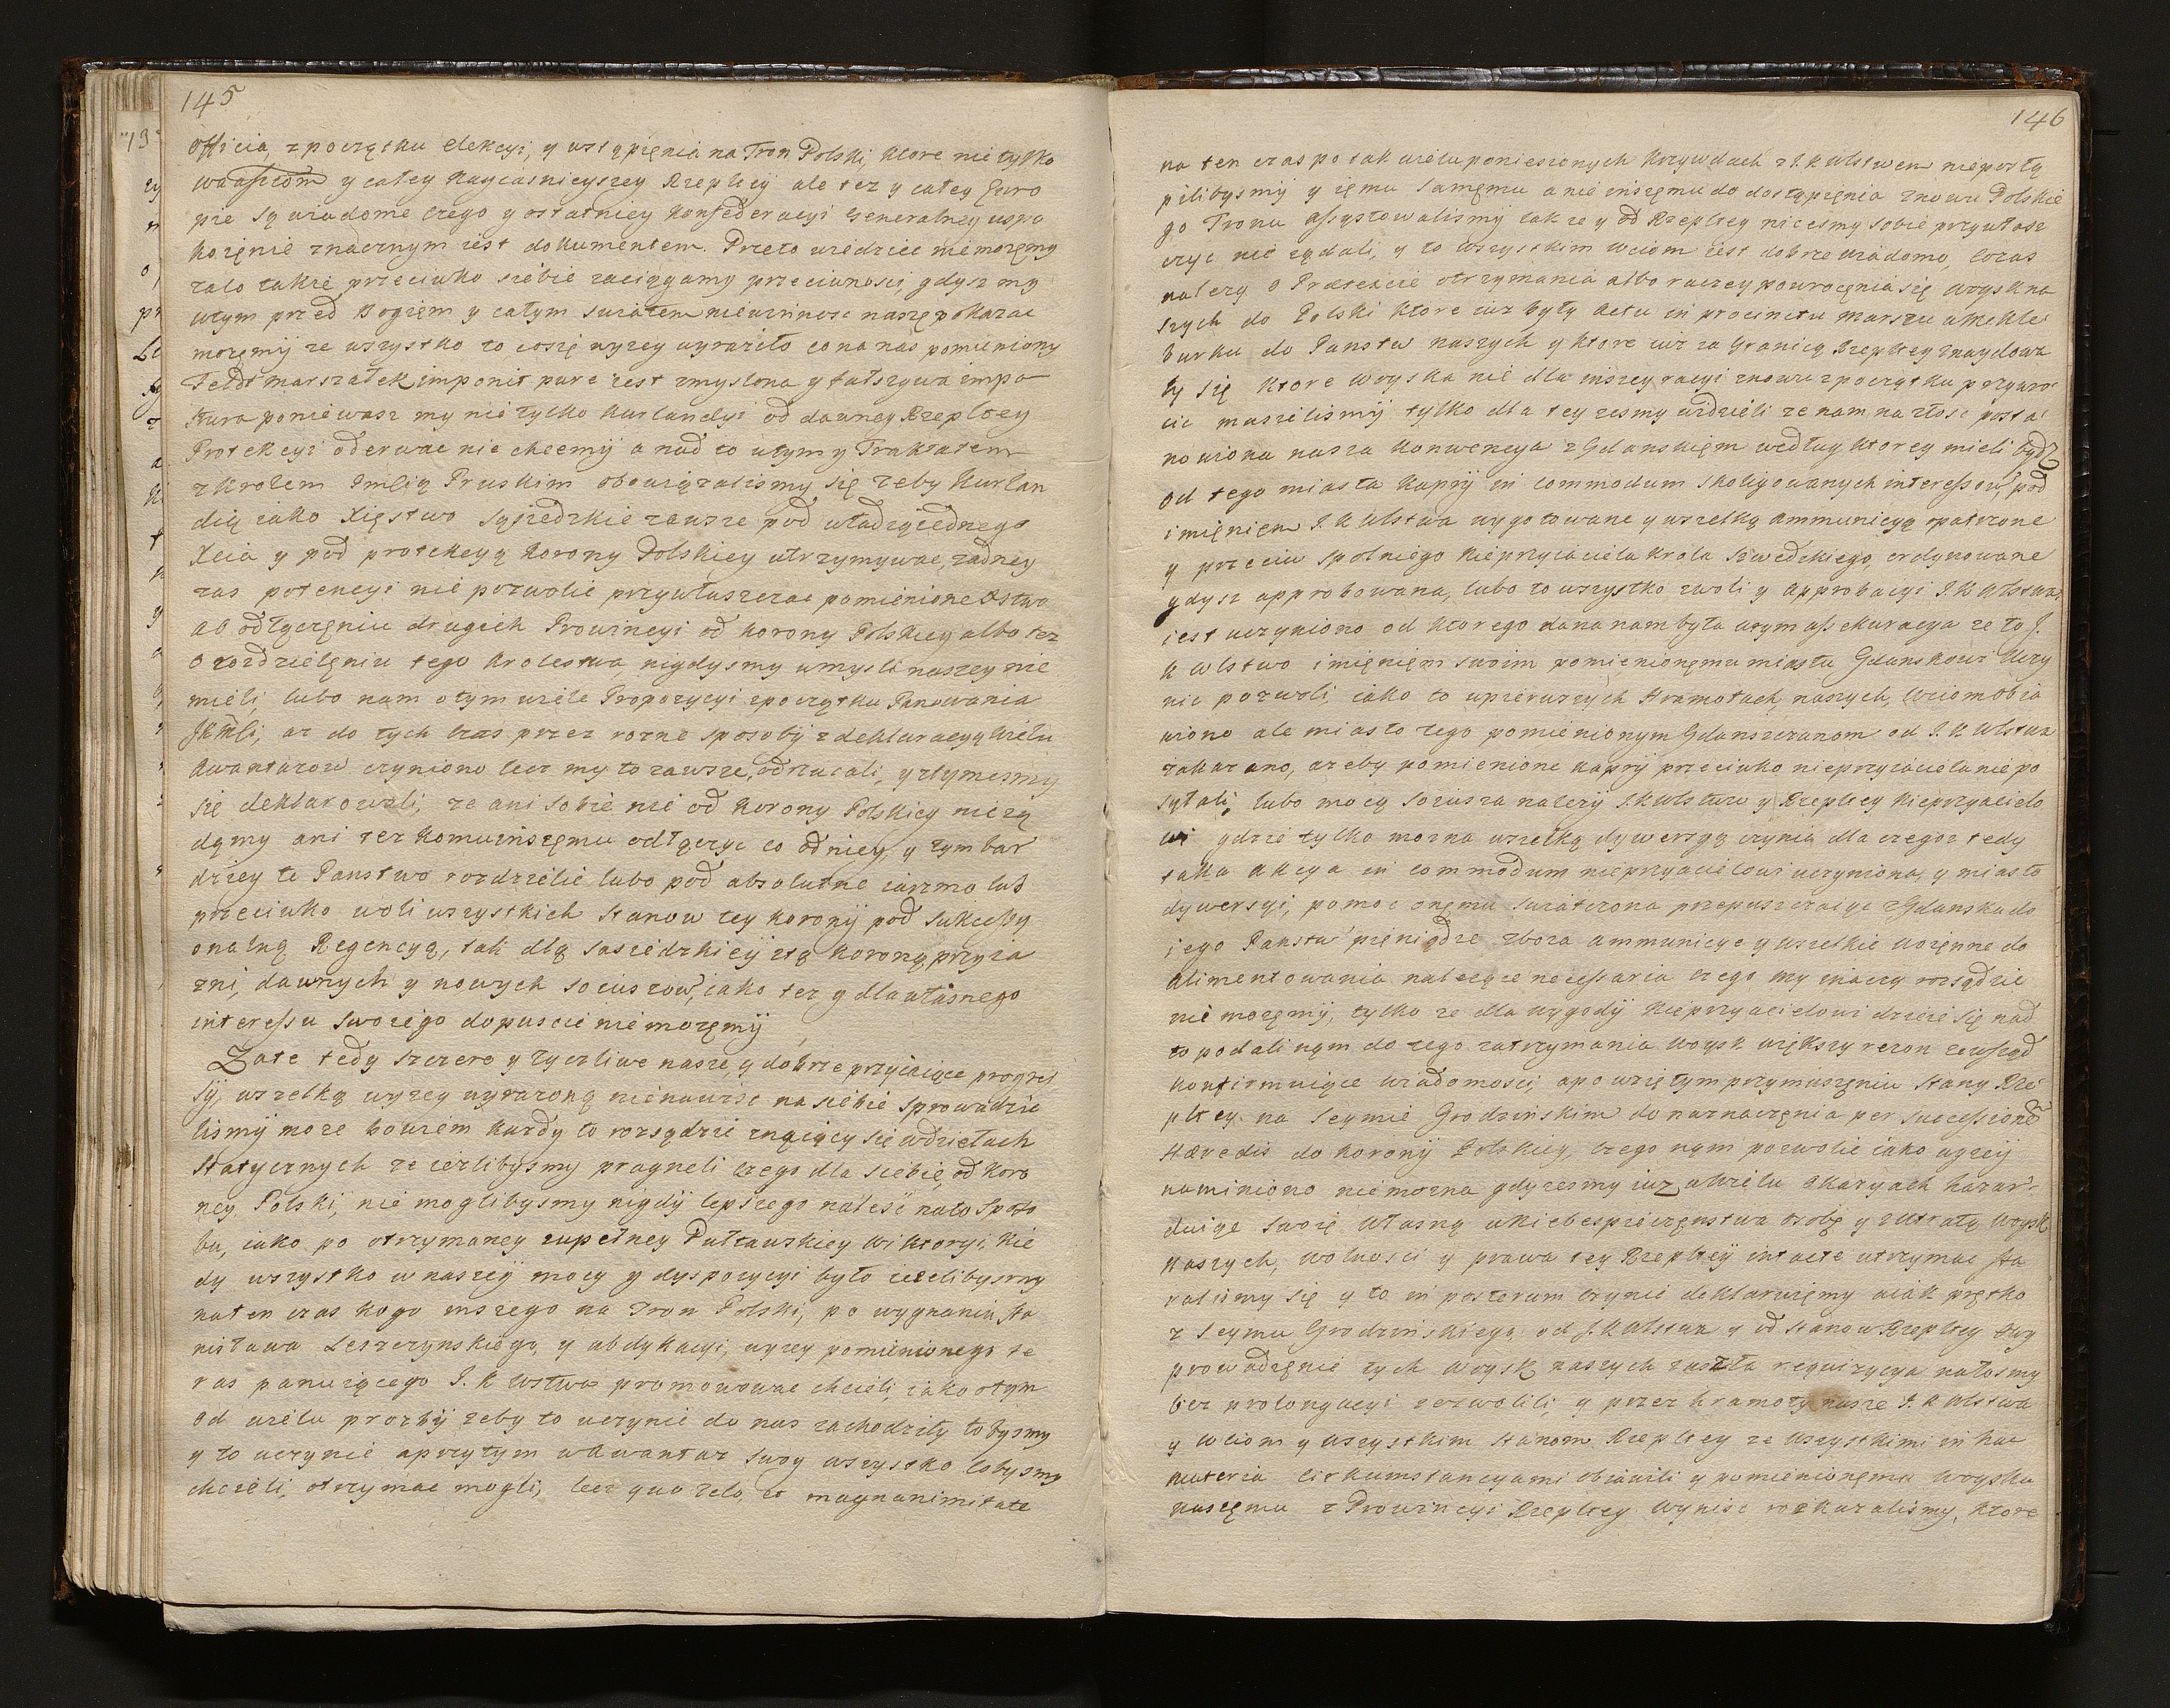 145
Officia, z początku elekcyi, y wstąpięnia na Tron Polski, ktore nie tylko
waszeciom y całey Nayiasnieyszey Rzeplтеy ale tez y całey Euro
pie są wiadome czego y ostatniey Konfederacyi Generalney uspo
koięnie znacznym iest dokumentem. Przeto wiedziec nie możęmy
zaco takie przeciwko siebie zaciągamy przeciwnosci, gdysz my
wtym przed Bogięm y całym swiatem niewinnosc naszę pokazac
możęmÿ ze wszystko to co się wyzey wyraziło co na nas pomieniony
Feldt marszałek imponit pure iest zmyslona y fałszywa impo
stura poniewasz my nie tylko Kurlandyi od dawney Rzeplтеy
Protekcyi oderwac nie chcemÿ a nad to wtym y Traktatem
z Krolem Jmścią Pruskim obowiązalismy się zeby Kurlan
dię iako Xięstwo sąsiedzkie zawsze pod władzą iednego
Xcia y pod protekcyą Korony Polskiey utrzymywac, zadney
zas potencyi nie pozwolic przywłaszczac pomienione Xstwo
ao odłączęniu drugich Prowincyi od Korony Polskiey albo tez
o rozdzielęniu tego Krolestwa nigdysmy umysli naszey nie
mieli, lubo nam otym wiele Propozycyi zpoczątku Panowania
JKMści, az do tych czas przez rozne sposobÿ z deklaracyą wielu
Awantazow czyniono lecz my to zawsze odrzucali, y ztymesmy
się deklarowali, ze ani sobie nic od Korony Polskiey nie zą
dąmy ani tez komu inszęmu odłączyc co od niey, y tym bar
dziey te Panstwo rozdzielic lubo pod absolutne iarzmo lub
przeciwko woli wszystkich Stanow tey Koronÿ pod sukcessy
onalną Regencyą, tak dlą sasiedzkieÿ ztą Koroną przyia
zni, dawnych y nowych sociuszow, iako tez y dla własnego
interessu swoiego dopuscic nie możęmÿ
Zate tedy szczere y zyczliwe nasze, y dobrze przyiaiące progres
sÿ, wszelką wyzey wyrazoną nienawisc na siebie sprowadzie
lismÿ moze bowiem kazdy to rozsądzic znaiący się w dziełach
Statycznych ze iezlibysmy pragneli czego dla siebie od Koro
ney Polski, nie moglibysmy nigdÿ lepszego nalesc nato sposo
bu, iako po otrzymaney zupełney Pułtawskiey wiktoryi, kie
dy wszystko w naszeÿ mocy y dyspozycyi było iezelibysmy
na ten czas kogo inszego na Tron Polski, po wygnaniu Sta
nisława Leszczynskiego, y abdykacyi, wyzey pomienionego te
raz panuiącego J. K Mstwa promowowac chcieli, iako otym
od wielu prozbÿ zeby to uczynic do nas zachodziły tobysmy
y to uczynic aprzytym w Awantaz swoy wszystko cobysmy
chcieli, otrzymac mogli, lecz quo zelo, et magnanimitate
146
na ten czas po tak wielu poniesionych krzywdach z J. K Mstwem niepostą
pilibysmÿ y iemu samęmu a nie inszęmu do dostąpięnia znowu Polskie
go Tronu assystowalismÿ tak ze y od Rzepltey nic esmy sobie przywłasz
czyc nie ządali, y to wszystkim wciom iest dobrze wiadomo, cozas
nalezy o Prætexcie otrzymania albo raczey powrocęnia się woysk na
szych do Polski ktore iuz były actu in procinctu marszu w Mekle
burku do Panstw naszych y ktore iuz za Granicą Rzepltey znaydowa
ły się ktore woyska nie dla inszey racyi znowu zpoczątku przywro
cic musielismÿ tylko dla tey zesmy widzieli ze nam na złosc posta
nowiona nasza Konwencya z Gdanskięm według ktorey mieli bydz
od tego miasta Kaprÿ in commodum skoligowanych interessow, pod
imięniem J. K Mstwa wygotowane y wszelką Ammunicyą opatrzone
y przeciw spolniego Nieprzyiaciela Krola Szwedzkiego, ordynowane
gdysz approbowana, lubo to wszystko zwoli y approbacyi J. K Mstwa
iest uczyniono od ktorego dana nam była wtym assekuracya ze to J.
K Mstwo imięnięm swoim pomienionęmu miastu Gdanskowi uczy
nic pozwoli, iako to wpierwszych Hramotach naszych, Wciom obia
wiono ale miasto tego pomienionym Gdanszczanom od J. K Mstwa
zakazano, azeby pomienione kaprÿ przeciwko nieprzyiaciela nie po
syłali, lubo mocą soiusza nalezÿ J. K Mstwu y Rzepltey Nieprzyacielo
wi gdzie tylko mozna wszelką dywersyą czynic, dla czegoz tedy
taka akcya in commodum nieprzyacielowi uczyniona, y miasto
dywersyi, pomoc onęmu swiatczona przepuszczaiąc z Gdanska do
iego Panstw pięniądze zboza ammunicye y wszelkie woięnne do
alimentowania nalezące necessaria czego my inaczy rozsądzic
nie możęmÿ, tylko ze dla wygodÿ Nieprzyacielowi dzieie się nad
to podali nąm do tego zatrzymania Woysk większy rezon zewsząd
konfirmuiące wiadomosci apowziętym przymuszęniu Stany Rze
pltey na Seymie Grodzinskim do naznaczęnia per successionē
Hæredis do Koronÿ Polskiey, czego nąm pozwolic iako wyzeÿ
namieniono nie mozna gdyzesmy iuz w wielu okazyach hazar
duiąc swoię własną w Niebespieczęnstwa osobę y Utratę Woysk
naszych, wolnosci y prawa tey Rzeplteÿ intacte utrzymac sta
ralismy się y to in posterum czynic deklaruięmy a iak prętko
z Seymu Grodzinskiego od J. K Mstwa y od Stanow Rzepltey o wy
prowadzęnie tych Woysk naszych zaszła requizycya natosmy
bez prolongacyi zezwolili, y przez hramoty nasze J. K Mstwa
y Wciom y wszystkim Stanom Rzepltey ze wszystkimi in hac
materia cirkumstancyami obiawili y pomienionęmu woysku
naszęmu z Prowincyi Rzepltey wynisc rozkazalismy, ktore